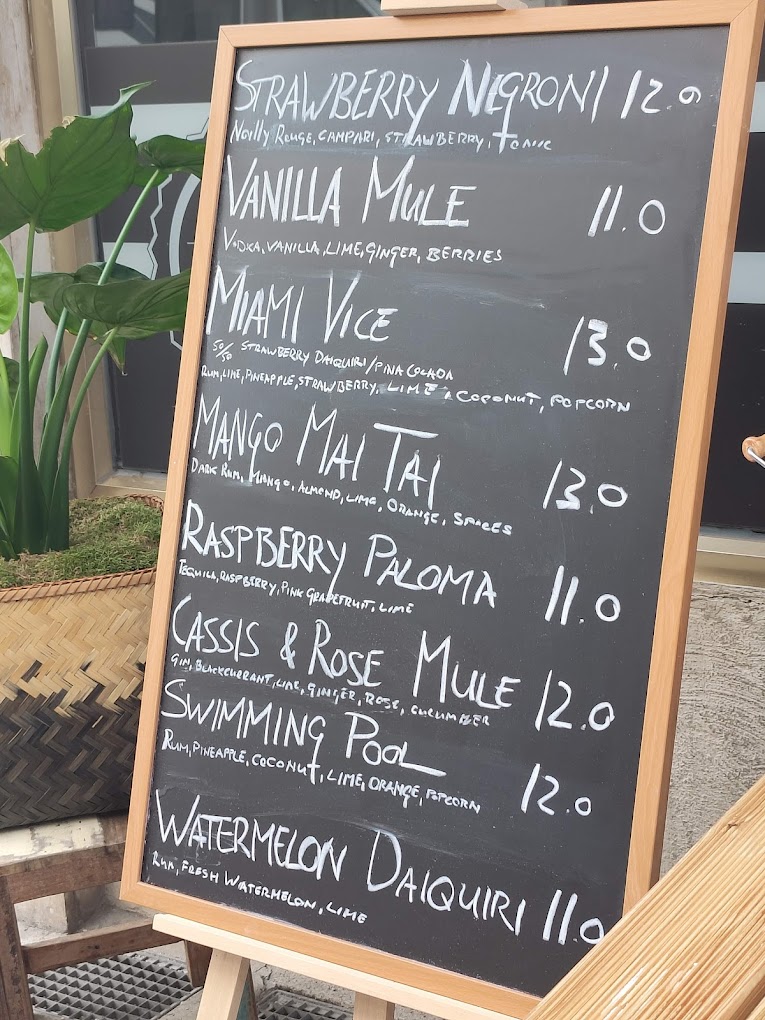 STRAWBERRY NEGRONI 12.0
Noilly Rouge, CAMPARI, STRAWBERRY, TONIC
VANILLA MULE 11.0
VODKA, VANILLA, LIME, GINGER, BERRIES
MIAMI VICE 13.0
50/50 STRAWBERRY DAIQUIRI/PINA COLADA
RUM, LIME, PINEAPPLE, STRAWBERRY, LIME, COCONUT, POPCORN
MANGO MAI TAI 13.0
DARK RUM, MANGO, ALMOND, LIME, ORANGE, SPICES
RASPBERRY PALOMA 11.0
TEQUILA, RASPBERRY, PINK GRAPEFRUIT, LIME
CASSIS & ROSE MULE 12.0
GIN, BLACKCURRANT, LIME, GINGER, ROSE, CUCUMBER
SWIMMING POOL 12.0
RUM, PINEAPPLE, COCONUT, LIME, ORANGE, POPCORN
WATERMELON DAIQUIRI 11.0
RUM, FRESH WATERMELON, LIME